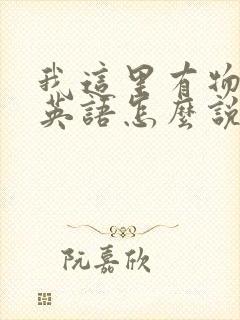 我這里有物
英語怎麼說
阮嘉欣